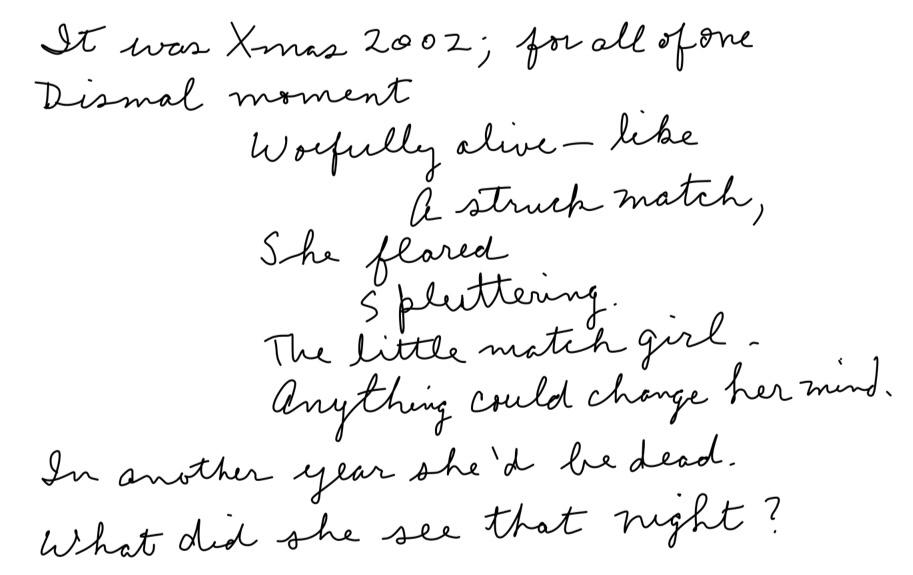 It was Xmas 2002; for all of one
Dismal moment
Woefully alive – like
A struck match,
She flared
Spluttering.
The little match girl -
Anything could change her mind.
In another year she'd be dead.
What did she see that night?